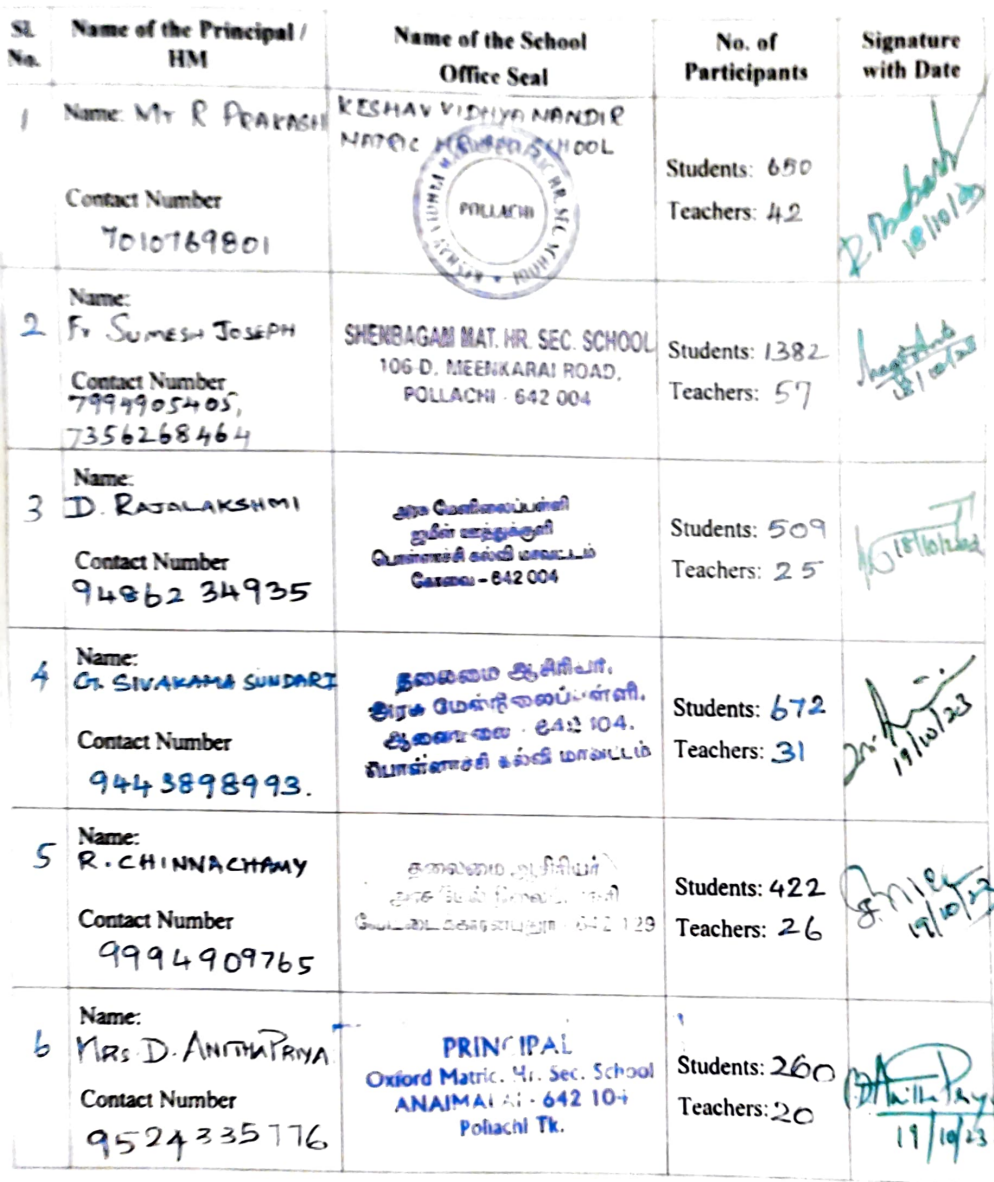 Sl. No. Name of the Principal / HM Name of the School Office Seal No. of Participants Signature with Date
1 Name: Mr R PRAKASH KESHAV VIDHYA MANDIR
MATRIC HR SEC SCHOOL
POLLACHI
Contact Number
7010769801
Students: 650
Teachers: 42
18/10/23
2 Name:
Fr SUMESH JOSEPH
Contact Number
7994905405,
7356268464
SHENBAGAM MAT. HR. SEC. SCHOOL
106-D, MEENKARAI ROAD,
POLLACHI - 642 004
Students: 1382
Teachers: 57
18/10/23
3 Name:
D. RAJALAKSHMI
Contact Number
94862 34935
அரசு மேனிலைப்பள்ளி
ஜமீன் ஊத்துக்குளி
பொள்ளாச்சி கல்வி மாவட்டம்
கோவை - 642 004
Students: 509
Teachers: 25
18/10/2023
4 Name:
G. SIVAKAMA SUNDARI
Contact Number
9443898993.
தலைமை ஆசிரியர்,
அரசு மேல்நிலைப்பள்ளி,
ஆனைமலை - 642 104.
பொள்ளாச்சி கல்வி மாவட்டம்
Students: 672
Teachers: 31
19/10/23
5 Name:
R. CHINNACHAMY
Contact Number
9994909765
தலைமை ஆசிரியர்
அரசு மேல் நிலைப் பள்ளி
வேட்டைக்காரன்புதூர் - 642 129
Students: 422
Teachers: 26
19/10/23
6 Name:
MRS D. ANITHAPRIYA
Contact Number
9524335776
PRINCIPAL
Oxford Matric. Hr. Sec. School
ANAIMALAI - 642 104
Pollachi Tk.
Students: 260
Teachers: 20
19/10/23